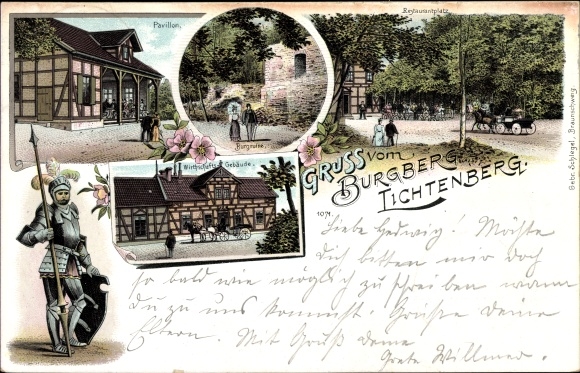 Pavillon.
Restaurantplatz.
Burgruine.
Wirthschafts-Gebäude.
GRUSS vom
BURGBERG
LICHTENBERG.
Gebr. Schlegel, Braunschweig
1071.
Liebe Hedwig! Möchte
dich bitten mir doch
so bald wie möglich zu schreiben wann
du zu uns kommst. Grüße deine
Eltern. Mit Gruß deine
Grete Willmer.